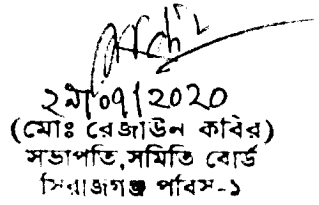 09/2020
(মোঃ রেজাউল কবির)
সভাপতি,সমিতি বোর্ড
সিরাজগঞ্জ পবিস-১